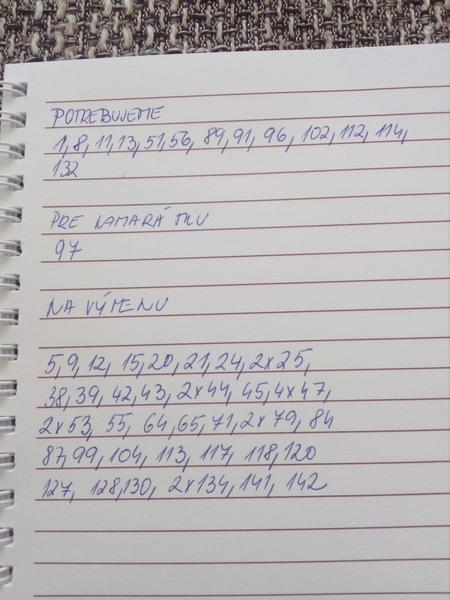 POTREBUJEME
1, 8, 11, 13, 51, 56, 89, 91, 96, 102, 112, 114,
132
PRE KAMARÁTKU
97
NA VÝMENU
5, 9, 12, 15, 20, 21, 24, 2x25,
38, 39, 42, 43, 2x44, 45, 4x47,
2x53, 55, 64, 65, 71, 2x79, 84
87, 99, 104, 113, 117, 118, 120
127, 128, 130, 2x134, 141, 142